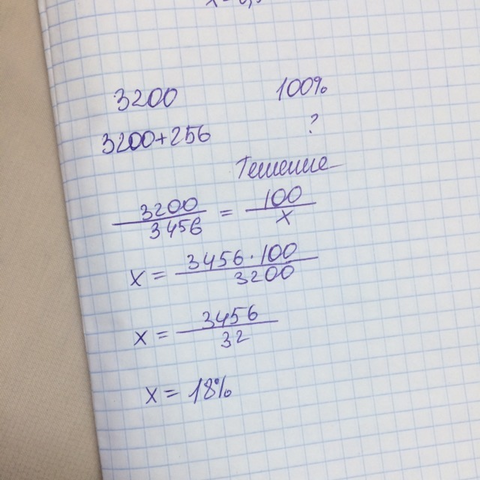 3200 100%
3200+256 ?
Решение
3200/3456 = 100/x
x = 3456·100/3200
x = 3456/32
x = 18%